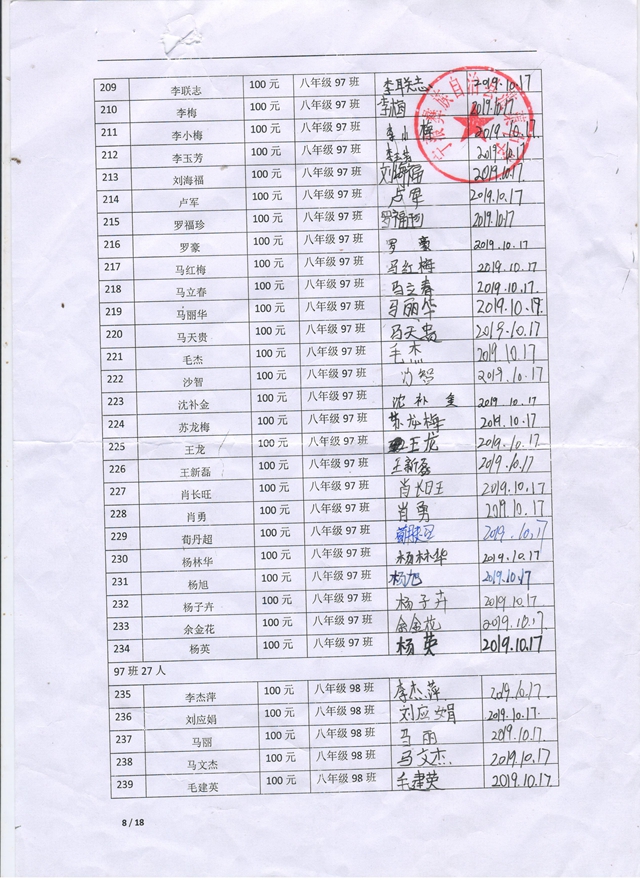 209 李联志 100元 八年级 97班 李联志 2019.10.17
210 李梅 100元 八年级 97班 李梅 2019.10.17
211 李小梅 100元 八年级 97班 李小梅 2019.10.17
212 李玉芳 100元 八年级 97班 李玉芳 2019.10.17
213 刘海福 100元 八年级 97班 刘海福 2019.10.17
214 卢军 100元 八年级 97班 卢军 2019.10.17
215 罗福珍 100元 八年级 97班 罗福珍 2019.10.17
216 罗豪 100元 八年级 97班 罗豪 2019.10.17
217 马红梅 100元 八年级 97班 马红梅 2019.10.17
218 马立春 100元 八年级 97班 马立春 2019.10.17
219 马丽华 100元 八年级 97班 马丽华 2019.10.17
220 马天贵 100元 八年级 97班 马天贵 2019.10.17
221 毛杰 100元 八年级 97班 毛杰 2019.10.17
222 沙智 100元 八年级 97班 沙智 2019.10.17
223 沈补金 100元 八年级 97班 沈补金 2019.10.17
224 苏龙梅 100元 八年级 97班 苏龙梅 2019.10.17
225 王龙 100元 八年级 97班 王龙 2019.10.17
226 王新磊 100元 八年级 97班 王新磊 2019.10.17
227 肖长旺 100元 八年级 97班 肖长旺 2019.10.17
228 肖勇 100元 八年级 97班 肖勇 2019.10.17
229 荀丹超 100元 八年级 97班 2019.10.17
230 杨林华 100元 八年级 97班 杨林华 2019.10.17
231 杨旭 100元 八年级 97班 杨旭 2019.10.17
232 杨子卉 100元 八年级 97班 杨子卉 2019.10.17
233 余金花 100元 八年级 97班 余金花 2019.10.17
234 杨英 100元 八年级 97班 杨英 2019.10.17
97班 27人
235 李杰萍 100元 八年级 98班 李杰萍 2019.10.17
236 刘应娟 100元 八年级 98班 刘应娟 2019.10.17
237 马丽 100元 八年级 98班 马丽 2019.10.17
238 马文杰 100元 八年级 98班 马文杰 2019.10.17
239 毛建英 100元 八年级 98班 毛建英 2019.10.17
8 / 18